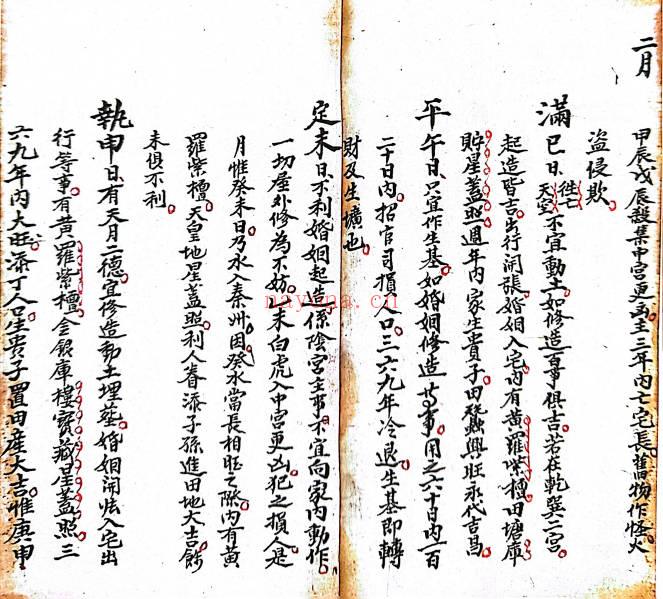 二月
甲辰戊辰殺集中宮更凶主三年內亡宅長舊物作怪火
盜侵欺
滿巳日 往亡 天空 不宜動土如修造百事俱吉若在乾巽二宮
起造皆吉出行開張婚姻入宅內有黃羅紫檀田塘庫
貯星蓋照週年內家生貴子田蠶興旺永代吉昌
平午日只宜作生基如婚姻修造等事用之六十日內一百
二十日內招官司損人口三六九年冷退生基即轉
財及生壙也
定未日不利婚姻起造係陰宮主事不宜向家內動作
一切屋外修為不妨未白虎入中宮更凶犯之損人是
月惟癸未日乃水入秦州因癸水當長相旺之際內有黃
羅紫檀天皇地星蓋照利人眷添子孫進田地大吉餘
未俱不利
執申日有天月二德宜修造動土埋葬婚姻開張入宅出
行等事有黃羅紫檀金銀庫樓寶藏星蓋照三
六九年內大旺添丁人口生貴子置田産大吉惟庚申
nayona.cn